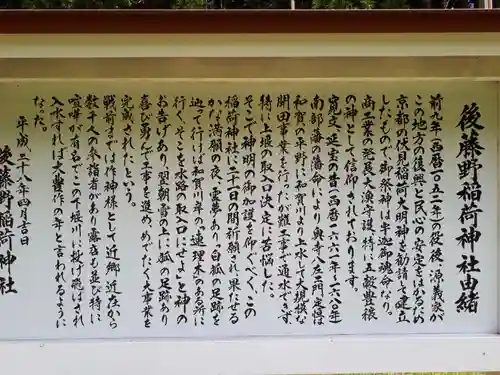 後藤野稲荷神社由緒
前九年(西暦一〇五二年)の役後、源義家が
この地方の復興と民心の安定をはるため
京都の伏見稲荷大明神を勧請して建立
したもので御祭神は宇迦御魂命なり。
商工業の発展、大漁守護、特に五穀豊穣
の神として信仰されております。
寛文~延宝の昔(西暦一六六一年~一六八〇年)
南部藩の藩命により奥寺八左エ門定恒は
和賀の平野に和賀川より上水して大規模な
開田事業を行ったが難工事で通水できず、
特に上堰の取入口決定に苦悩した。
そこで神明の御加護を仰ぐべく、この
稲荷神社に二十一日の期祈願され果たせる
かな満願の夜、霊夢あり、白狐の足跡を
辿って行けば和賀川岸の「連理木のある所に
行く、そこを水路の取入口にせよ」と神の
お告げあり、翌朝雪の上に狐の足跡あり
喜び勇んで工事を進め、めでたく大事業を
完成されたという。
戦前までは作神様として近郷近在から
数千人の参詣者があり露店も並び特に
喧嘩が有名でこの千堰川に投げ飛ばされ
入水すれば大豊作の年と言われるように
なった。
平成二十八年四月吉日
後藤野稲荷神社